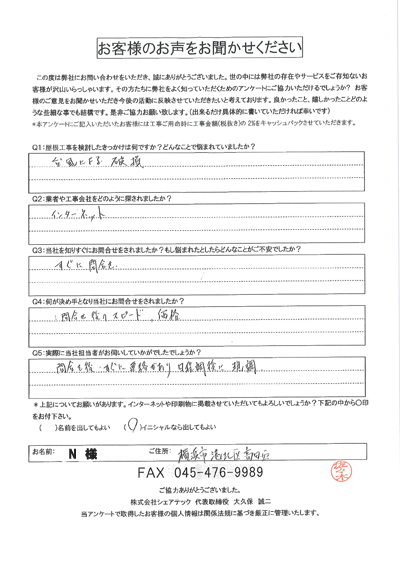 お客様のお声をお聞かせください
この度は弊社にお問い合わせをいただき、誠にありがとうございました。世の中には弊社の存在やサービスをご存知ないお
客様が沢山いらっしゃいます。その方たちに弊社をよく知っていただくためのアンケートにご協力いただけるでしょうか？ お客
様のご意見をお聞かせいただき今後の活動に反映させていただきたいと考えております。良かったこと、嬉しかったことどのよ
うな些細な事でも結構です。是非ご協力お願い致します。（出来るだけ具体的に書いていただければ幸いです）
*本アンケートにご記入いただいたお客様には工事ご用命時に工事金額(税抜き)の 2%をキャッシュバックさせていただきます。
Q1：屋根工事を検討したきっかけは何ですか？どんなことで悩まれていましたか？
台風による 破損
Q2：業者や工事会社をどのように探されましたか？
インターネット
Q3：当社を知りすぐにお問合せをされましたか？もし悩まれたとしたらどんなことがご不安でしたか？
すぐに 問合せ
Q4：何が決め手となり当社にお問合せをされましたか？
問合せ後の スピード。価格
Q5：実際に当社担当者がお伺いしていかがでしたでしょうか？
問合せ後、すぐに 連絡があり 日程調整に
*上記についてお願いがあります。インターネットや印刷物に掲載させていただいてもよろしいでしょうか？下記の中から〇印
をお付下さい。
（　）名前を出してもよい （〇）イニシャルなら出してもよい
お名前： N 様 ご住所： 横浜市 港北区
FAX 045-476-9989
ご協力ありがとうございました。
株式会社シェアテック 代表取締役 大久保 誠二
当アンケートで取得したお客様の個人情報は関係法規に基づき厳正に管理いたします。